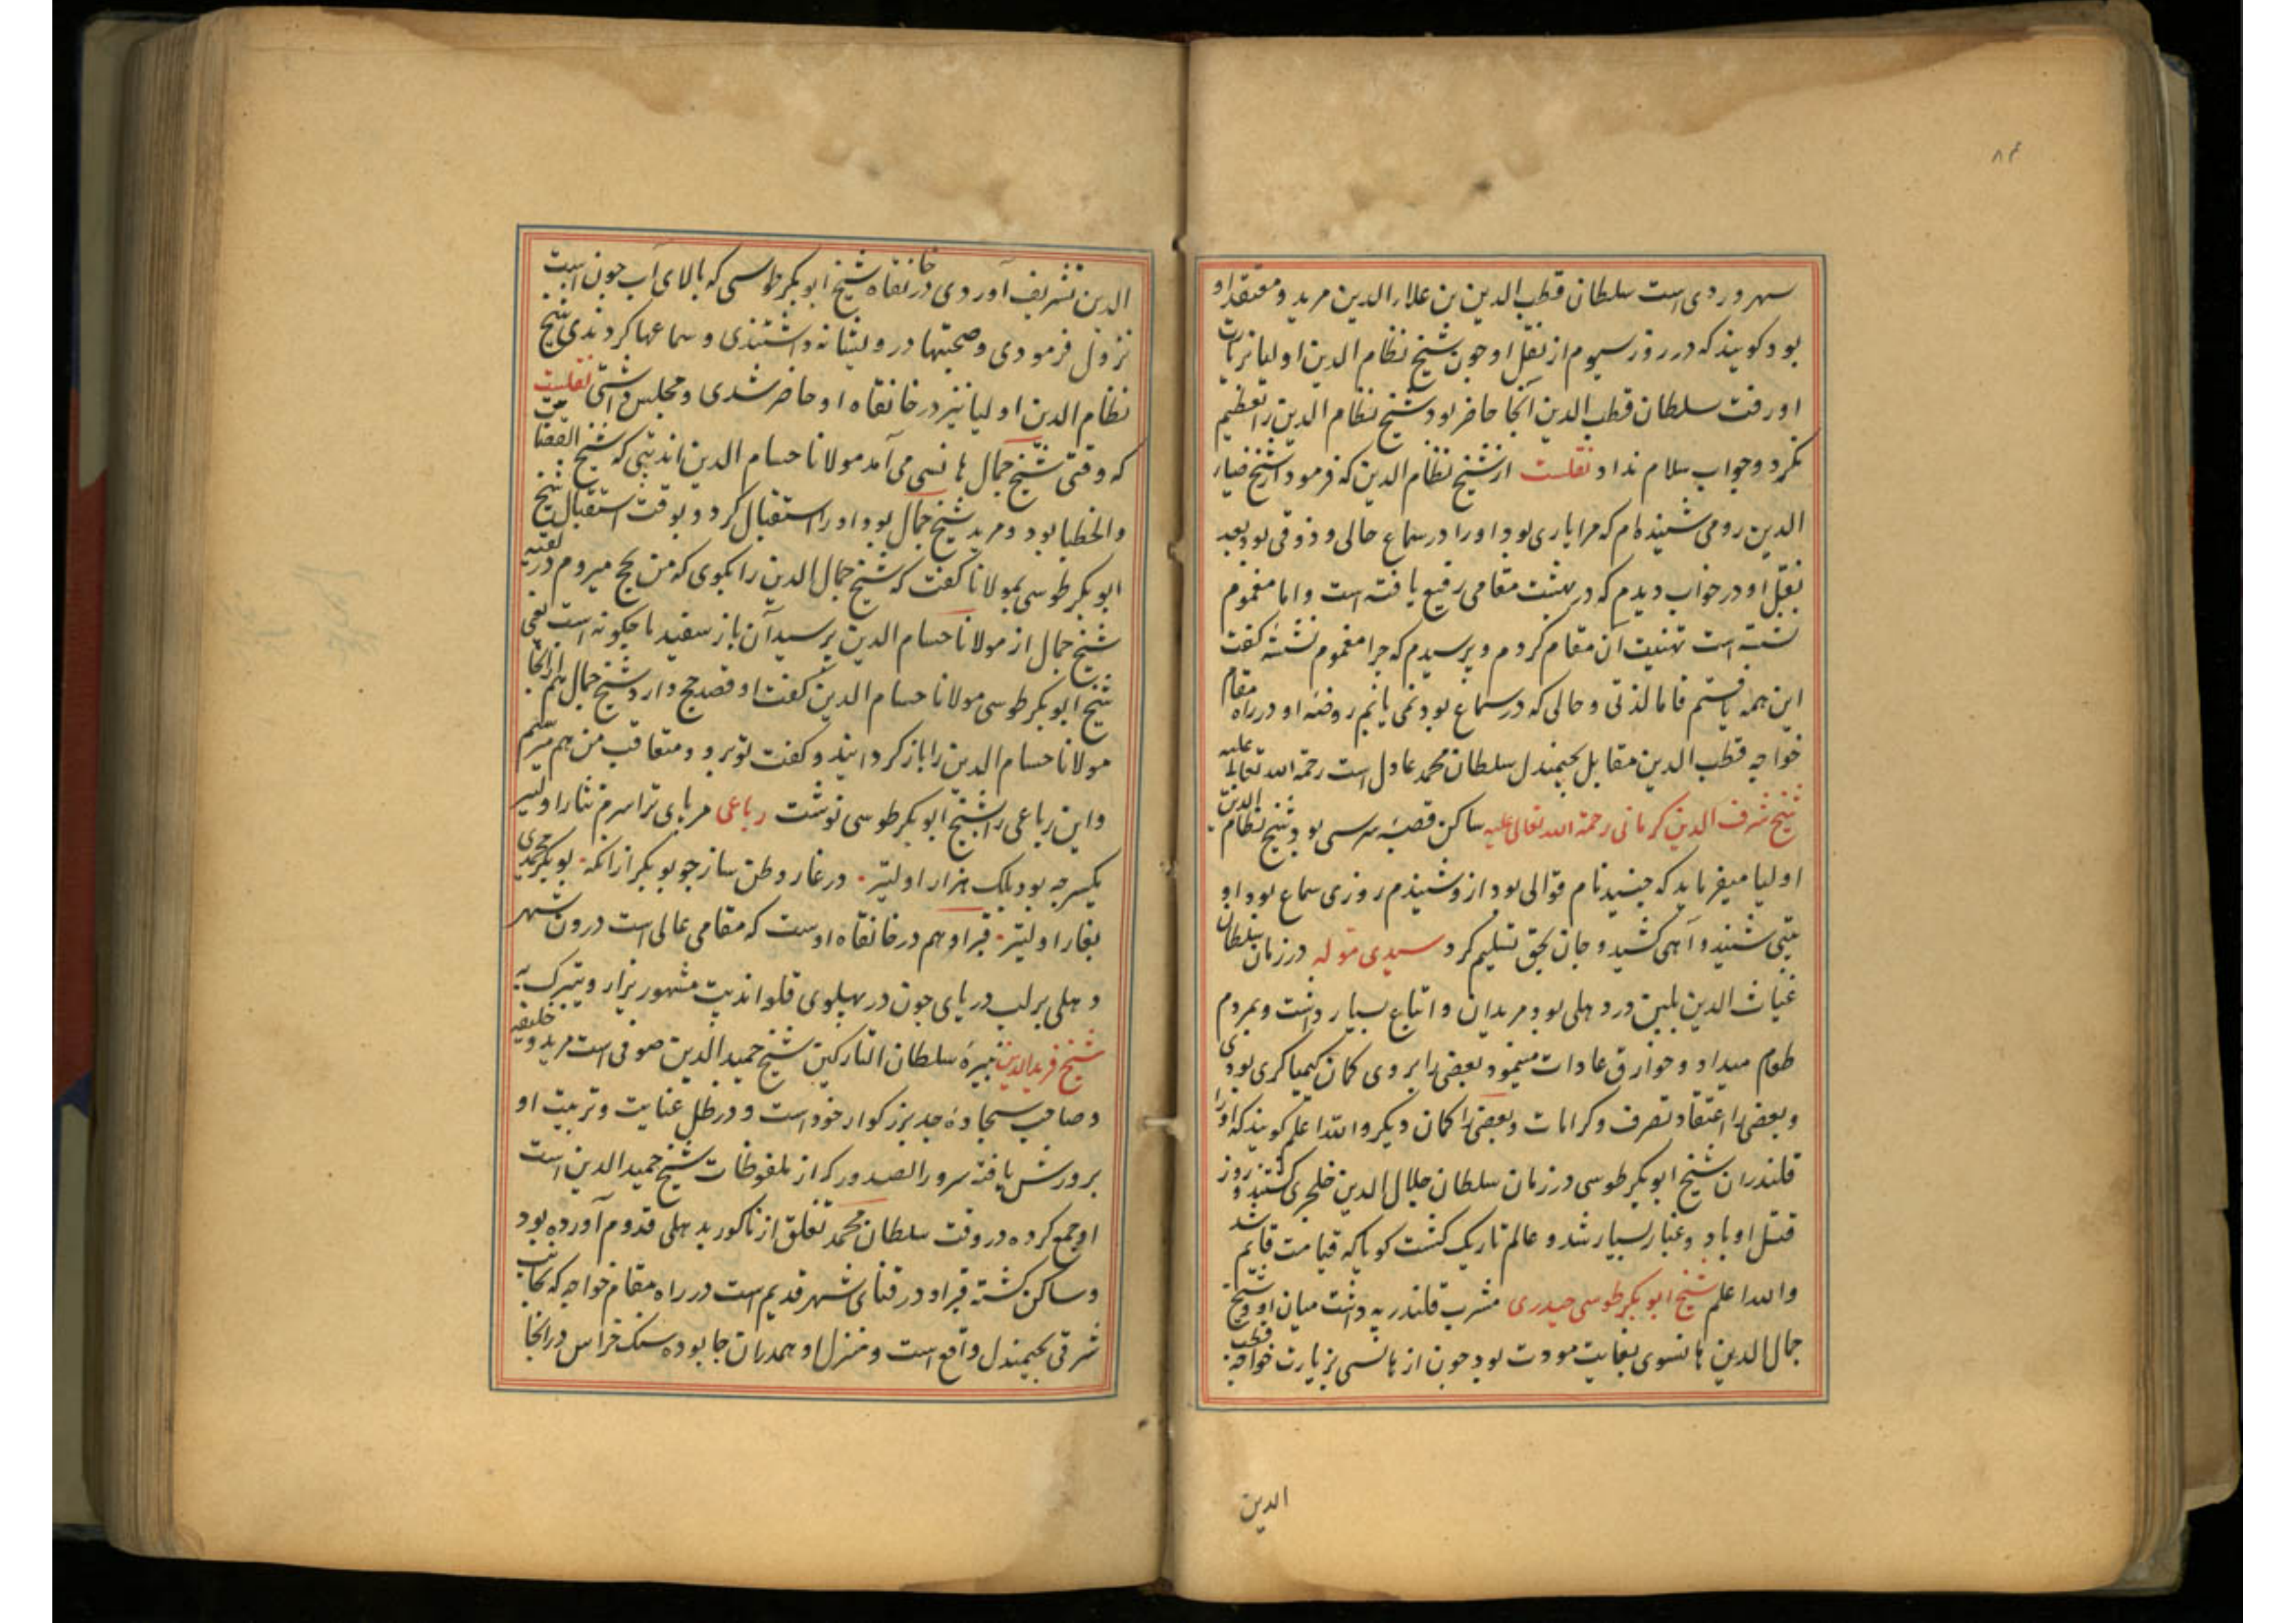 ۸۴
سهروردی است سلطان قطب الدین بن علاء الدین مرید و معتقد او
بود کویند که در روز سیوم از نقل او چون شیخ نظام الدین اولیا بزیارت
او رفت سلطان قطب الدین آنجا حاضر بود شیخ نظام الدین را تعظیم
نکرد و جواب سلام نداد نقلست از شیخ نظام الدین که فرمود از شیخ ضیاء
الدین رومی شنیده ام که مرا یاری بود او را در سماع حالی و ذوقی بود بعد
نقل او در خواب دیدم که در بهشت مقامی رفیع یافته است و اما مغموم
نشسته است تهنیت آن مقام کردم و پرسیدم که چرا مغموم نشسته کفت
این همه یافتم فاما لذتی و حالی که در سماع بود نمی یابم روضه او در راه مقام
خواجه قطب الدین مقابل بجیمندل سلطان محمد عادل است رحمة الله تعالی علیه
شیخ شرف الدین کرمانی رحمة الله تعالی علیه ساکن قصبه سرسی بود شیخ نظام الدین
اولیا میفرماید که جنید نام قوالی بود ازو شنیدم روزی سماع بود او
بیتی شنید و آهی کشید و جان بحق تسلیم کرد سیدی موله در زمان سلطان
غیاث الدین بلبن در دهلی بود مریدان و اتباع بسیار داشت و بمردم
طعام میداد و خوارق عادات مینمود بعضی را بروی کمان کیمیاکری بودی
و بعضی را اعتقاد تصرف و کرامات و بعضی را کمان دیکر والله اعلم کویند که او را
قلندران شیخ ابوبکر طوسی در زمان سلطان جلال الدین خلجی کشتند و روز
قتل او باد و غبار بسیار شد و عالم تاریک کشت کویا که قیامت قایم شد
والله اعلم شیخ ابوبکر طوسی حیدری مشرب قلندریه داشت میان او و شیخ
جمال الدین هانسوی بغایت مودت بود چون از هانسی بزیارت خواجه قطب
الدین
الدین تشریف آوردی در خانقاه شیخ ابوبکر طوسی که بالای آب جون است
نزول فرمودی و صحبتها درویشانه داشتندی و سماعها کردندی شیخ
نظام الدین اولیا نیز در خانقاه او حاضر شدی و مجلس داشتی نقلست
که وقتی شیخ جمال هانسی می آمد مولانا حسام الدین اندپتی که شیخ القضات
والخطبا بود و مرید شیخ جمال بود او را استقبال کرد و بوقت استقبال شیخ
ابوبکر طوسی بمولانا کفت که شیخ جمال الدین را بکوی که من بحج میروم
شیخ جمال از مولانا حسام الدین پرسید آن باز سفید ما چکونه است یعنی
شیخ ابوبکر طوسی مولانا حسام الدین کفت او قصد حج دارد شیخ جمال هم از انجا
مولانا حسام الدین را باز کردانید و کفت تو برو و متعاقب من هم میرسم
و این رباعی را شیخ ابوبکر طوسی نوشت رباعی مر پای ترا سرم نثار اولیتر
یکسر چه بود بلک هزار اولیتر در غار وطن ساز چو بوبکر از انکه بوبکر محمدی
بغار اولیتر قبر او هم در خانقاه اوست که مقامی عالی است درون شهر
دهلی بر لب دریای جون در پهلوی قلعه اندپت مشهور یزار و یتبرک به
شیخ فرید الدین نبیره سلطان التارکین شیخ حمید الدین صوفی است مرید و خلیفه
و صاحب سجاده جد بزرکوار خود است و در ظل عنایت و تربیت او
پرورش یافته سرور الصدور که از ملفوظات شیخ حمید الدین است
او جمع کرده در وقت سلطان محمد تغلق از ناکور بدهلی قدوم آورده بود
و ساکن کشته قبر او در فنای شهر قدیم است در راه مقام خواجه که بجانب
شرقی بجیمندل واقع است و منزل او همدران جا بوده سنک خراس در انجا